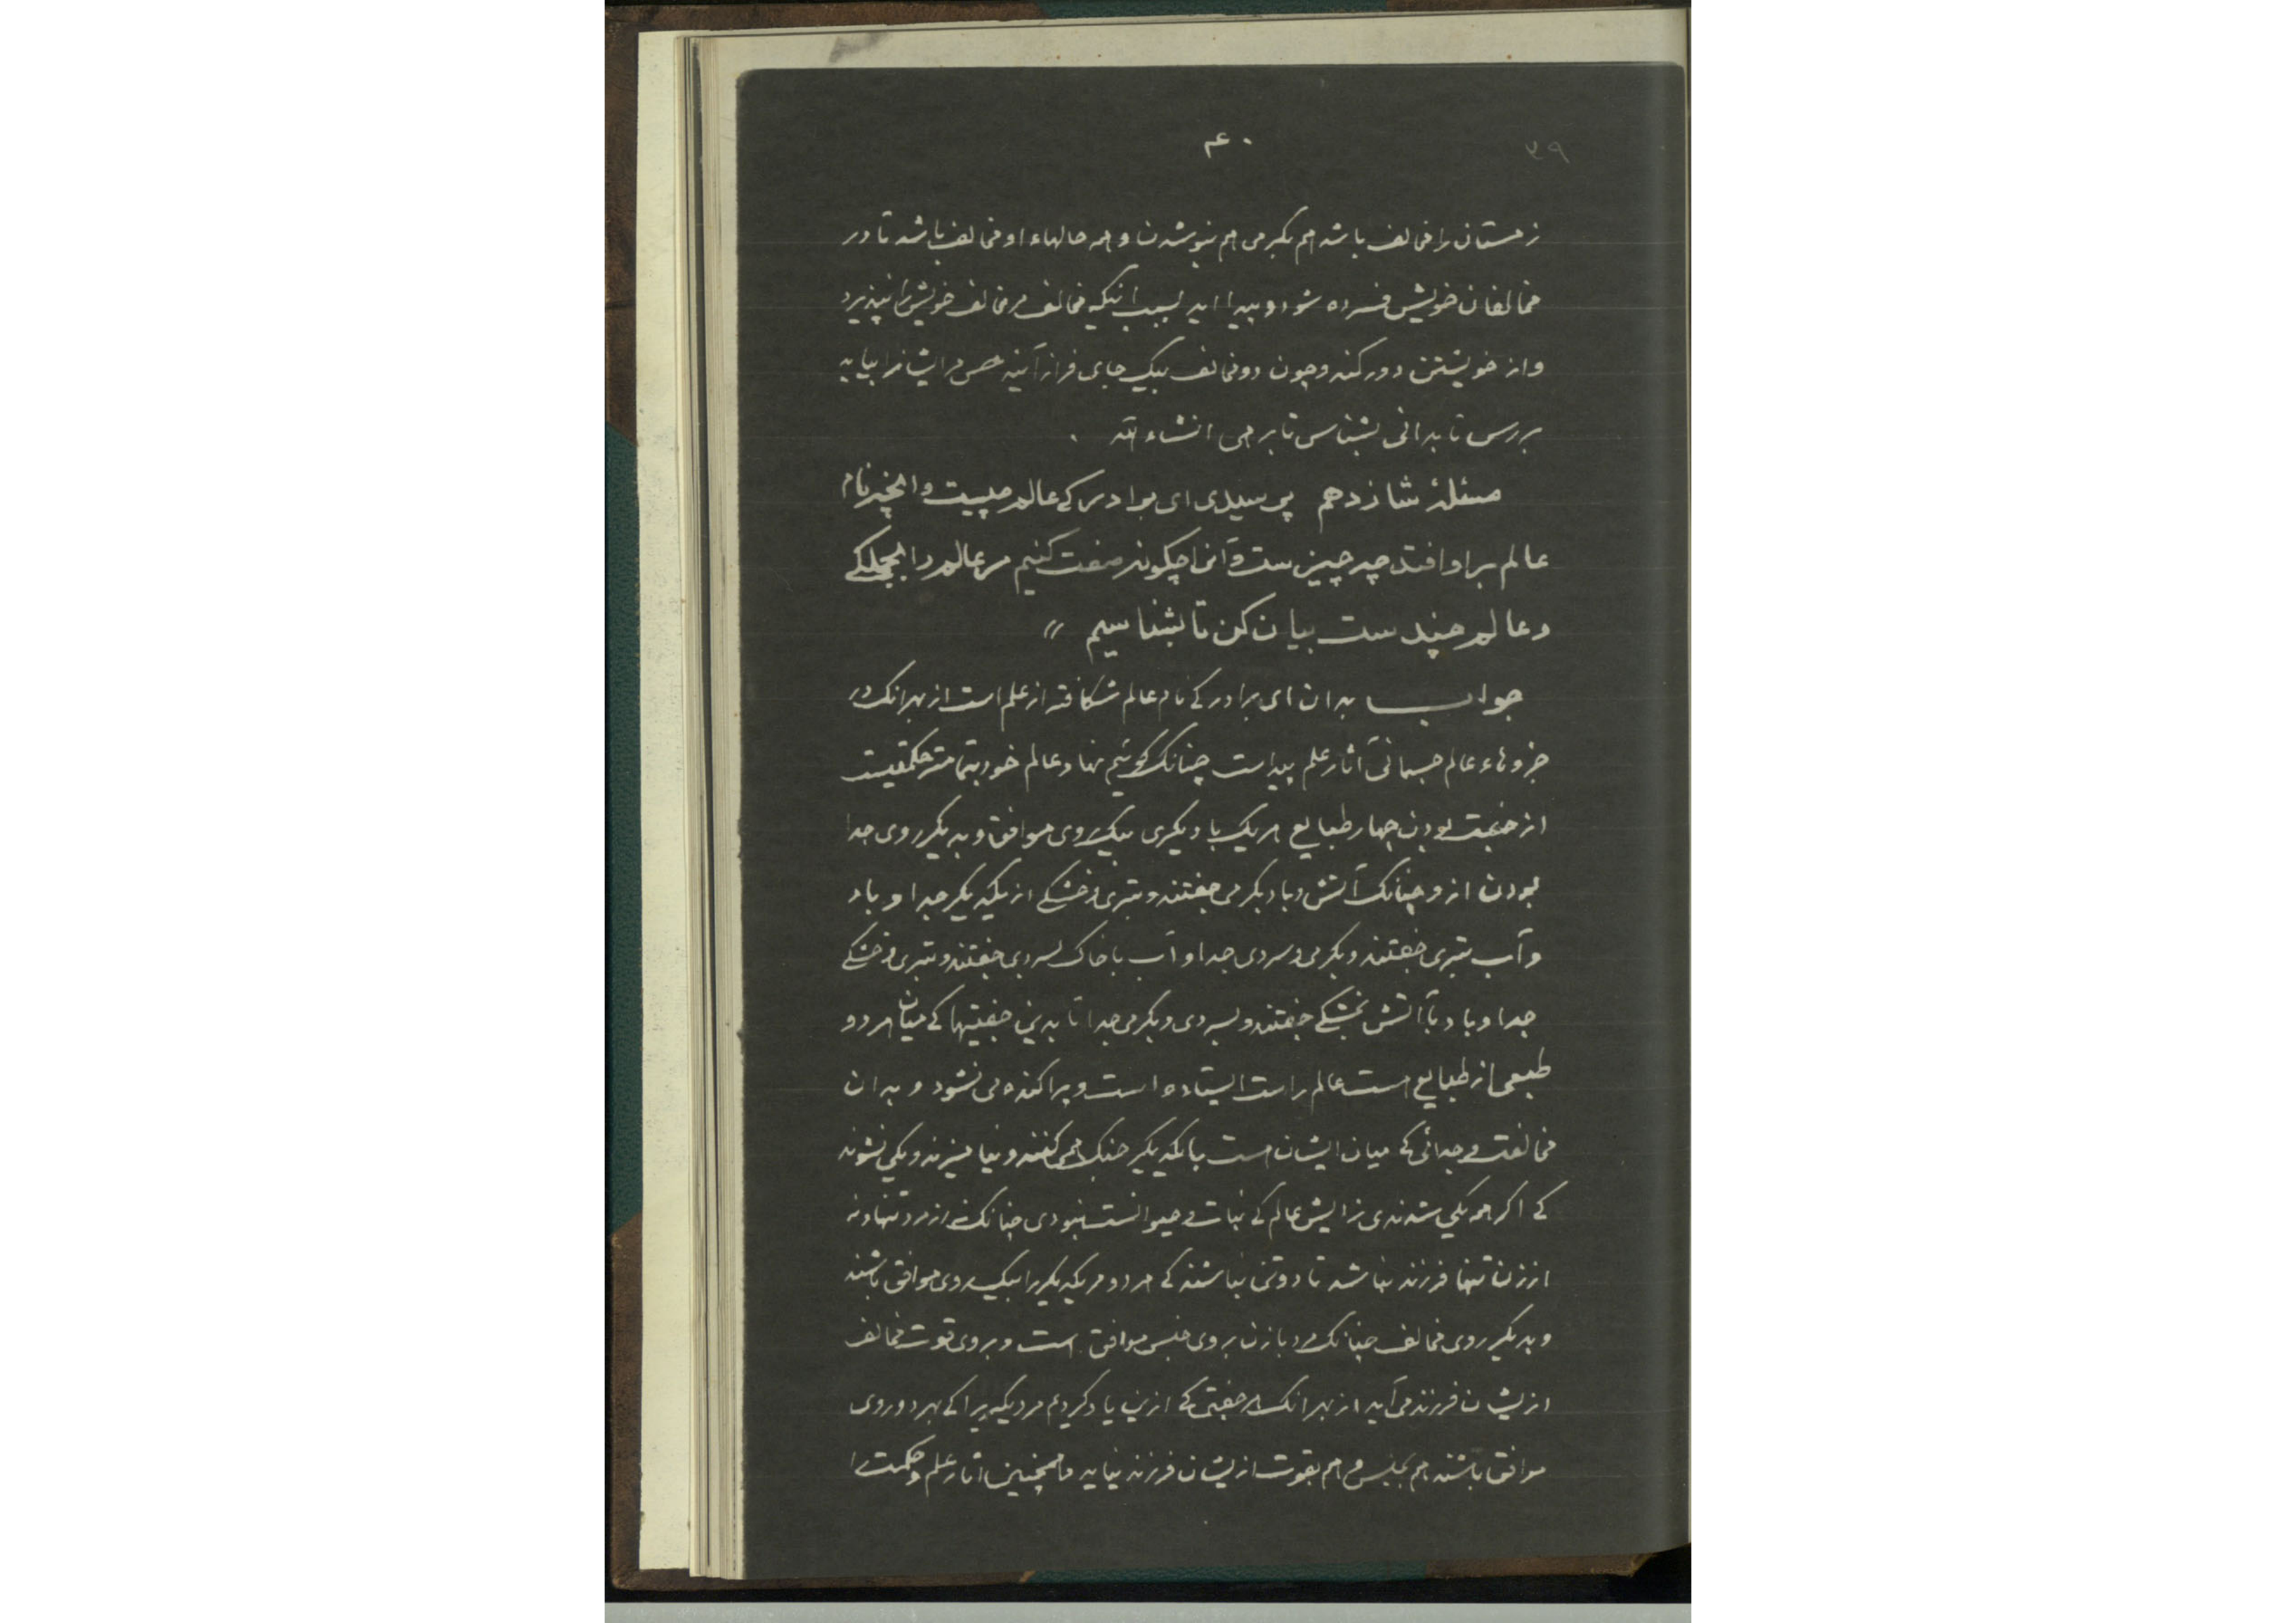 ۳۹
۴۰
زمستان را مخالف باشد هم بگرمی هم بنوشدن و همه حالهاء او مخالف باشد تا در
مخالفان خویش فسرده شود و پیدا اید بسبب انکه مخالف مر مخالف خویش را نپذیرد
و از خویشتن دور کند و چون دو مخالف بیک جای فراز آیند حس مر ایشانرا بیابد
بررس تا بدانی بشناس تا برهی انشاء الله .
مسئلهٔ شازدهم پرسیدی ای برادر کی عالم چیست و انچیز نام
عالم بر او افتد چه چیزست و آنرا چگونه صفت کنیم مر عالم را بجملکی
و عالم چندست بیان کن تا بشناسیم //
جواب بدان ای برادر کی نام عالم شکافته از علم است از بهر انک در
جزوهاء عالم جسمانی آثار علم پیداست چنانک گوئیم نهاد عالم خود بتمامتر حکمتیست
از جفت بودن چهار طبایع هر یک با دیگری بیک روی موافق و بدیگر روی جدا
بودن ازو چنانک آتش و باد بگرمی جفتند و بتری و خشکی از یکدیگر جدا و باد
و آب بتری جفتند و بگرمی و سردی جدا و آب با خاک بسردی جفتند و بتری و خشکی
جدا و باد با آتش بخشکی جفتند و بسردی و بگرمی جدا تا بدین جفتیها کی میان هر دو
طبعی از طبایع هست عالم راست ایستاده است و پراکنده می نشود و بدان
مخالفت و جدائی کی میان ایشان هست با یکدیگر جنک همی کنند و نیامیزند و یکی نشوند
کی اکر همه یکی شدندی زایش عالم کی نبات و حیوانست نبودی چنانک نه از مرد تنها و نه
از زن تنها فرزند نباشد تا دو تن نباشند کی هر دو مر یکدیگر را بیک روی موافق باشند
و بدیگر روی مخالف چنانک مرد با زن بروی جنس موافق است و بروی قوت مخالف
ازیشان فرزند می آید از بهر انک هر جفتی کی ازین یاد کردیم مر دیگر را کی بهر دو روی
موافق باشند هم بجنس و هم بقوت ازیشان فرزند نیاید و همچنین اثار علم و حکمت را